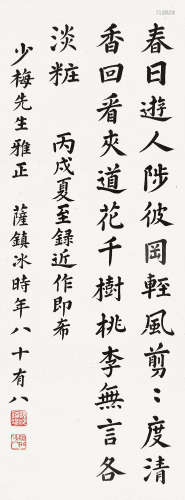 春日遊人陟彼岡輕風剪〻度清
香回看夾道花千樹桃李無言各
淡粧 丙戌夏至錄近作即希
少梅先生雅正 薩鎮冰時年八十有八